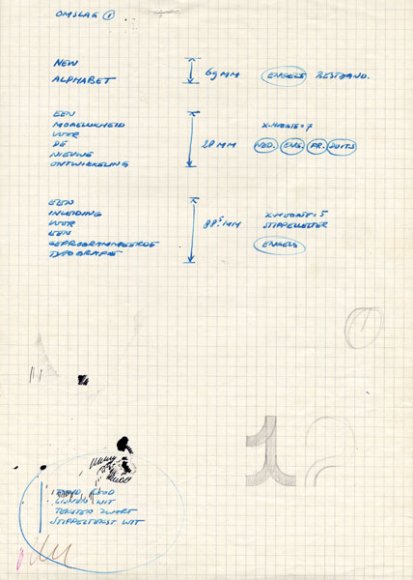 OMSLAG 1
NEW
ALPHABET
69 MM
ENGELS BESTAAND.
EEN
MOGELIJKHEID
VOOR
DE
NIEUWE
ONTWIKKELING
X-HOOGTE: 7
28 MM
NED. ENG. FR. DUITS
EEN
INLEIDING
VOOR
EEN
GEPROGRAMMEERDE
TYPOGRAFIE
X-HOOGTE: 5
STIPPELLETTER
88⁵ MM
ENGELS
1
12
FOND ROOD
WIT
TEKSTEN ZWART
STIPPELTEKST WIT